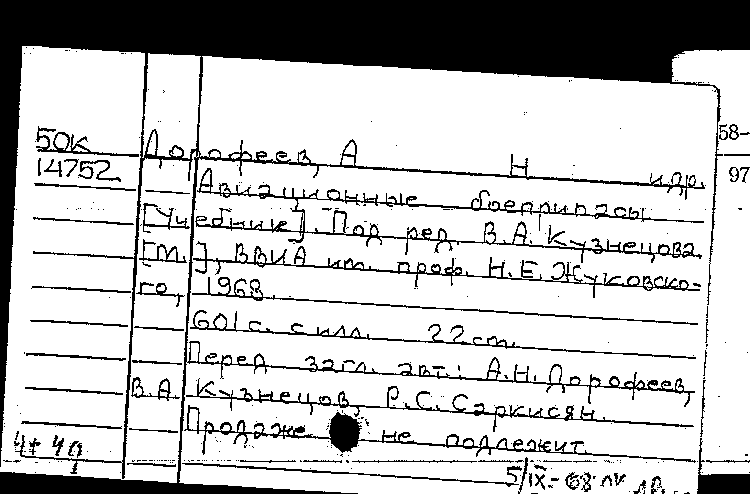 50к
14752
Дорофеев, А Н и др.
Авиационные боеприпасы
[Учебник]. Под ред. В.А. Кузнецова.
[М.], ВВИА им. проф. Н.Е. Жуковско-
го, 1968.
601 с. с илл. 22 см.
Перед загл. авт.: А.Н. Дорофеев,
В.А. Кузнецов, Р.С. Саркисян.
Продаже не подлежит
5/IX-68
58-
97